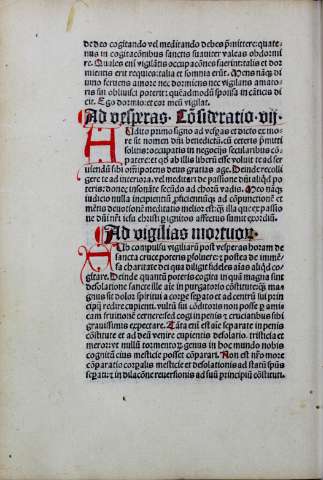 de deo cogitando vel meditando debes p̄mittere: quate-
nus in cogitacōnibus sanctis suauiter valeas obdormi
re. Quales eni vigilātis occupacōnes fuerint: talis et dor
mientis erit requies: talia et somnia erūt. Mens nāqȝ di
uino feruens amore nec dormiens nec vigilans amato
ris sui obliuisci poterit: quēadmodū sponsa in cāticis di
cit. Ego dormio: et cor meū vigilat.
Ad vesperas. Cōsideratio. vij.
AUdito primo signo ad vesꝑas et dicto ex mo-
re sit nomen dn̄i benedictū. cū ceteris p̄mitti
solitis: occupatis in negocijs secularibus cō-
patere: et qȝ ab illis liberū esse voluit te ad ser
uiendū sibi om̄ipotens deus gratias age. Deinde recolli
gere te ad interiora. vel meditare de passione dn̄i aliqd po
teris: donec insonāte secūdo ad chorū vadis. Nec nāqȝ
iudicio nulla incipientiū ꝓficientiūqȝ ad cōpunctionē et
mētis deuotionē meditatio melior est: qȝ illa que ex passio
ne dn̄i nr̄i iesu christi ꝓ ignitos affectus sumit exordiū.
Ad vigilias mortuorꝝ.
AUb compulsu vigiliarū post vesꝑas horam de
sancta cruce poteris ꝑsoluere: et postea de immē
sa charitate dei qua diligit fideles aīas aliqd co
gitare. Deinde quantū poteris cogita in quā magna sint
desolatione sancte ille aīe in purgatorio cōstitute: qȝ ma-
gnus sit dolor spiritui a corpe segato et ad centrū sui prin
cipij redire cupienti. vultū sui cōditoris non posse ꝓ amis
cam fruitionē cernere: sed cogi in penis et cruciatibus sibi
grauissimis expectare. Tāta eni est aīe separate in penis
cōstitute et ad deū venire cupientis desolatio. tristicia et
meror: vt nullū tormentorꝝ genus in hoc mundo nobis
cognitū eius mesticie possit cōparari. Non est nr̄o more
cōparatio corpalis mesticie et desolationis ad statū spūs
segatū: et in dilacōne reuersionis ad suū principiū cōstituti.